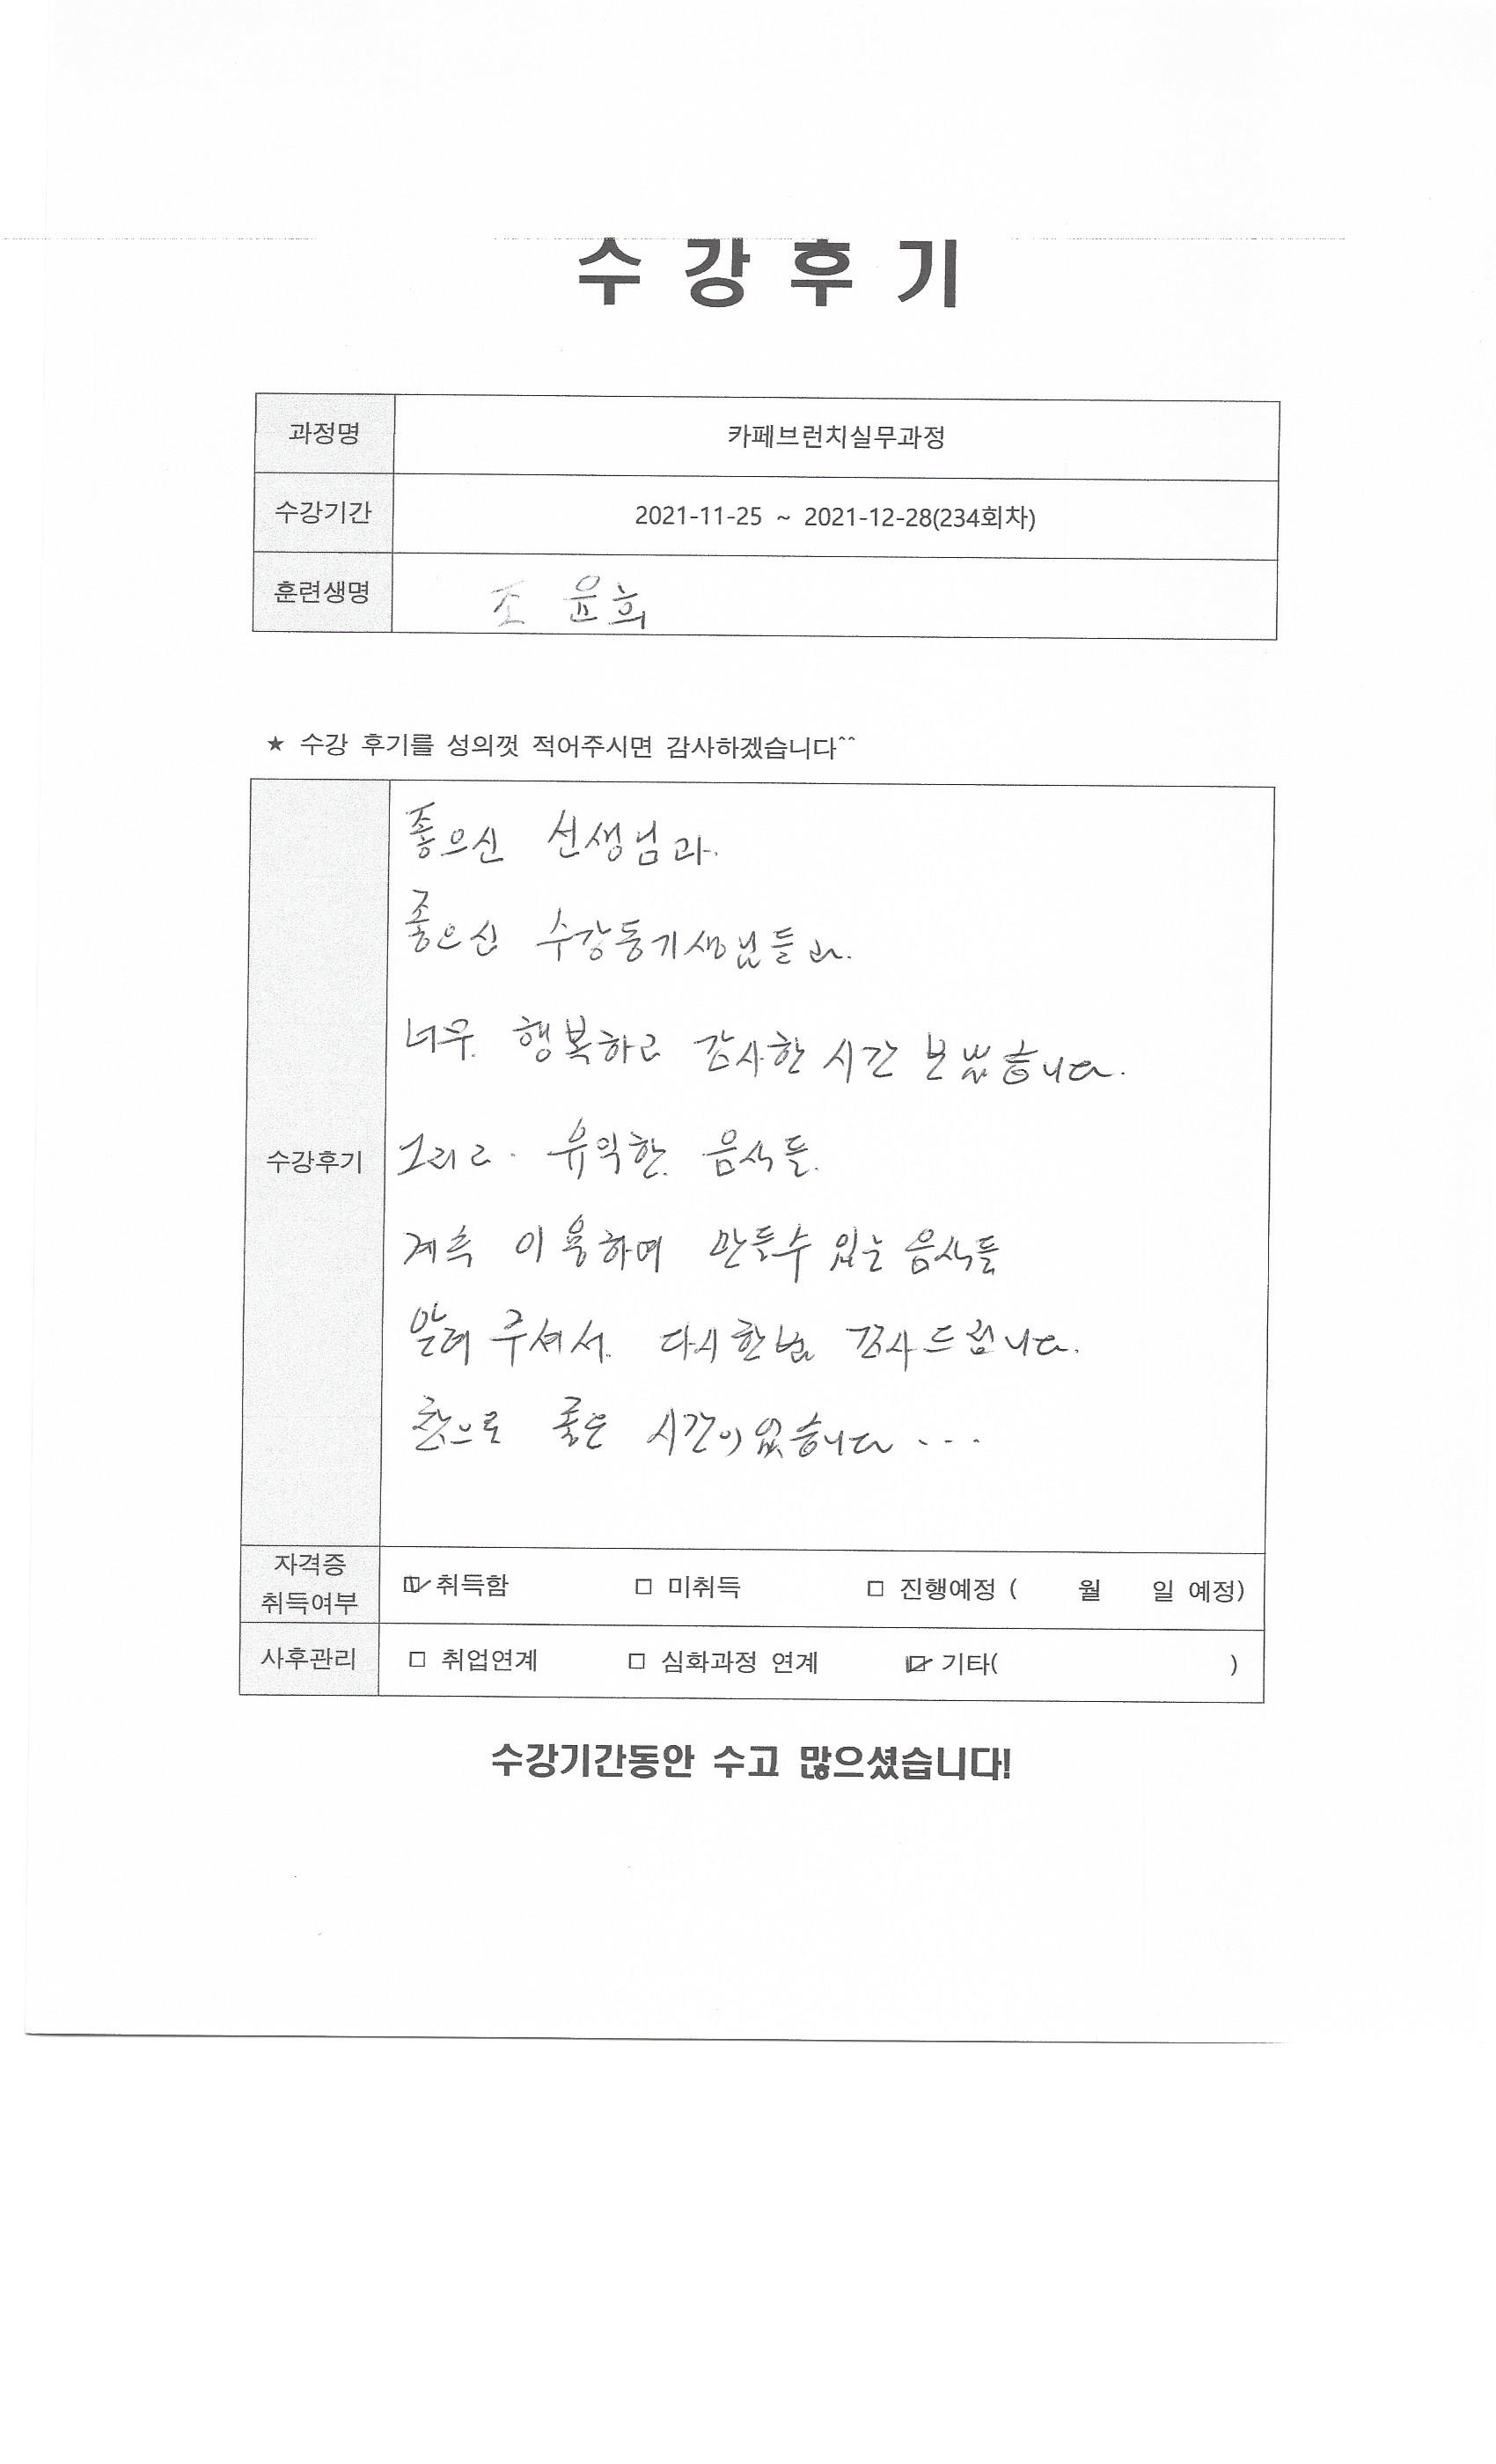 수 강 후 기
과정명 카페브런치실무과정
수강기간 2021-11-25 ~ 2021-12-28(234회차)
훈련생명 조 윤희
★ 수강 후기를 성의껏 적어주시면 감사하겠습니다^^
수강후기
좋으신 선생님과.
좋으신 수강동기생님들과.
너무. 행복하고 감사한 시간 보냈습니다.
그리고. 유익한. 음식들.
계속 이용하여 만들수 있는 음식들
알려 주셔서. 다시한번 감사드립니다.
참으로 좋은 시간이었습니다 . . . .
자격증 취득여부 ☑ 취득함 □ 미취득 □ 진행예정 ( 월 일 예정)
사후관리 □ 취업연계 □ 심화과정 연계 ☑ 기타( )
수강기간동안 수고 많으셨습니다!